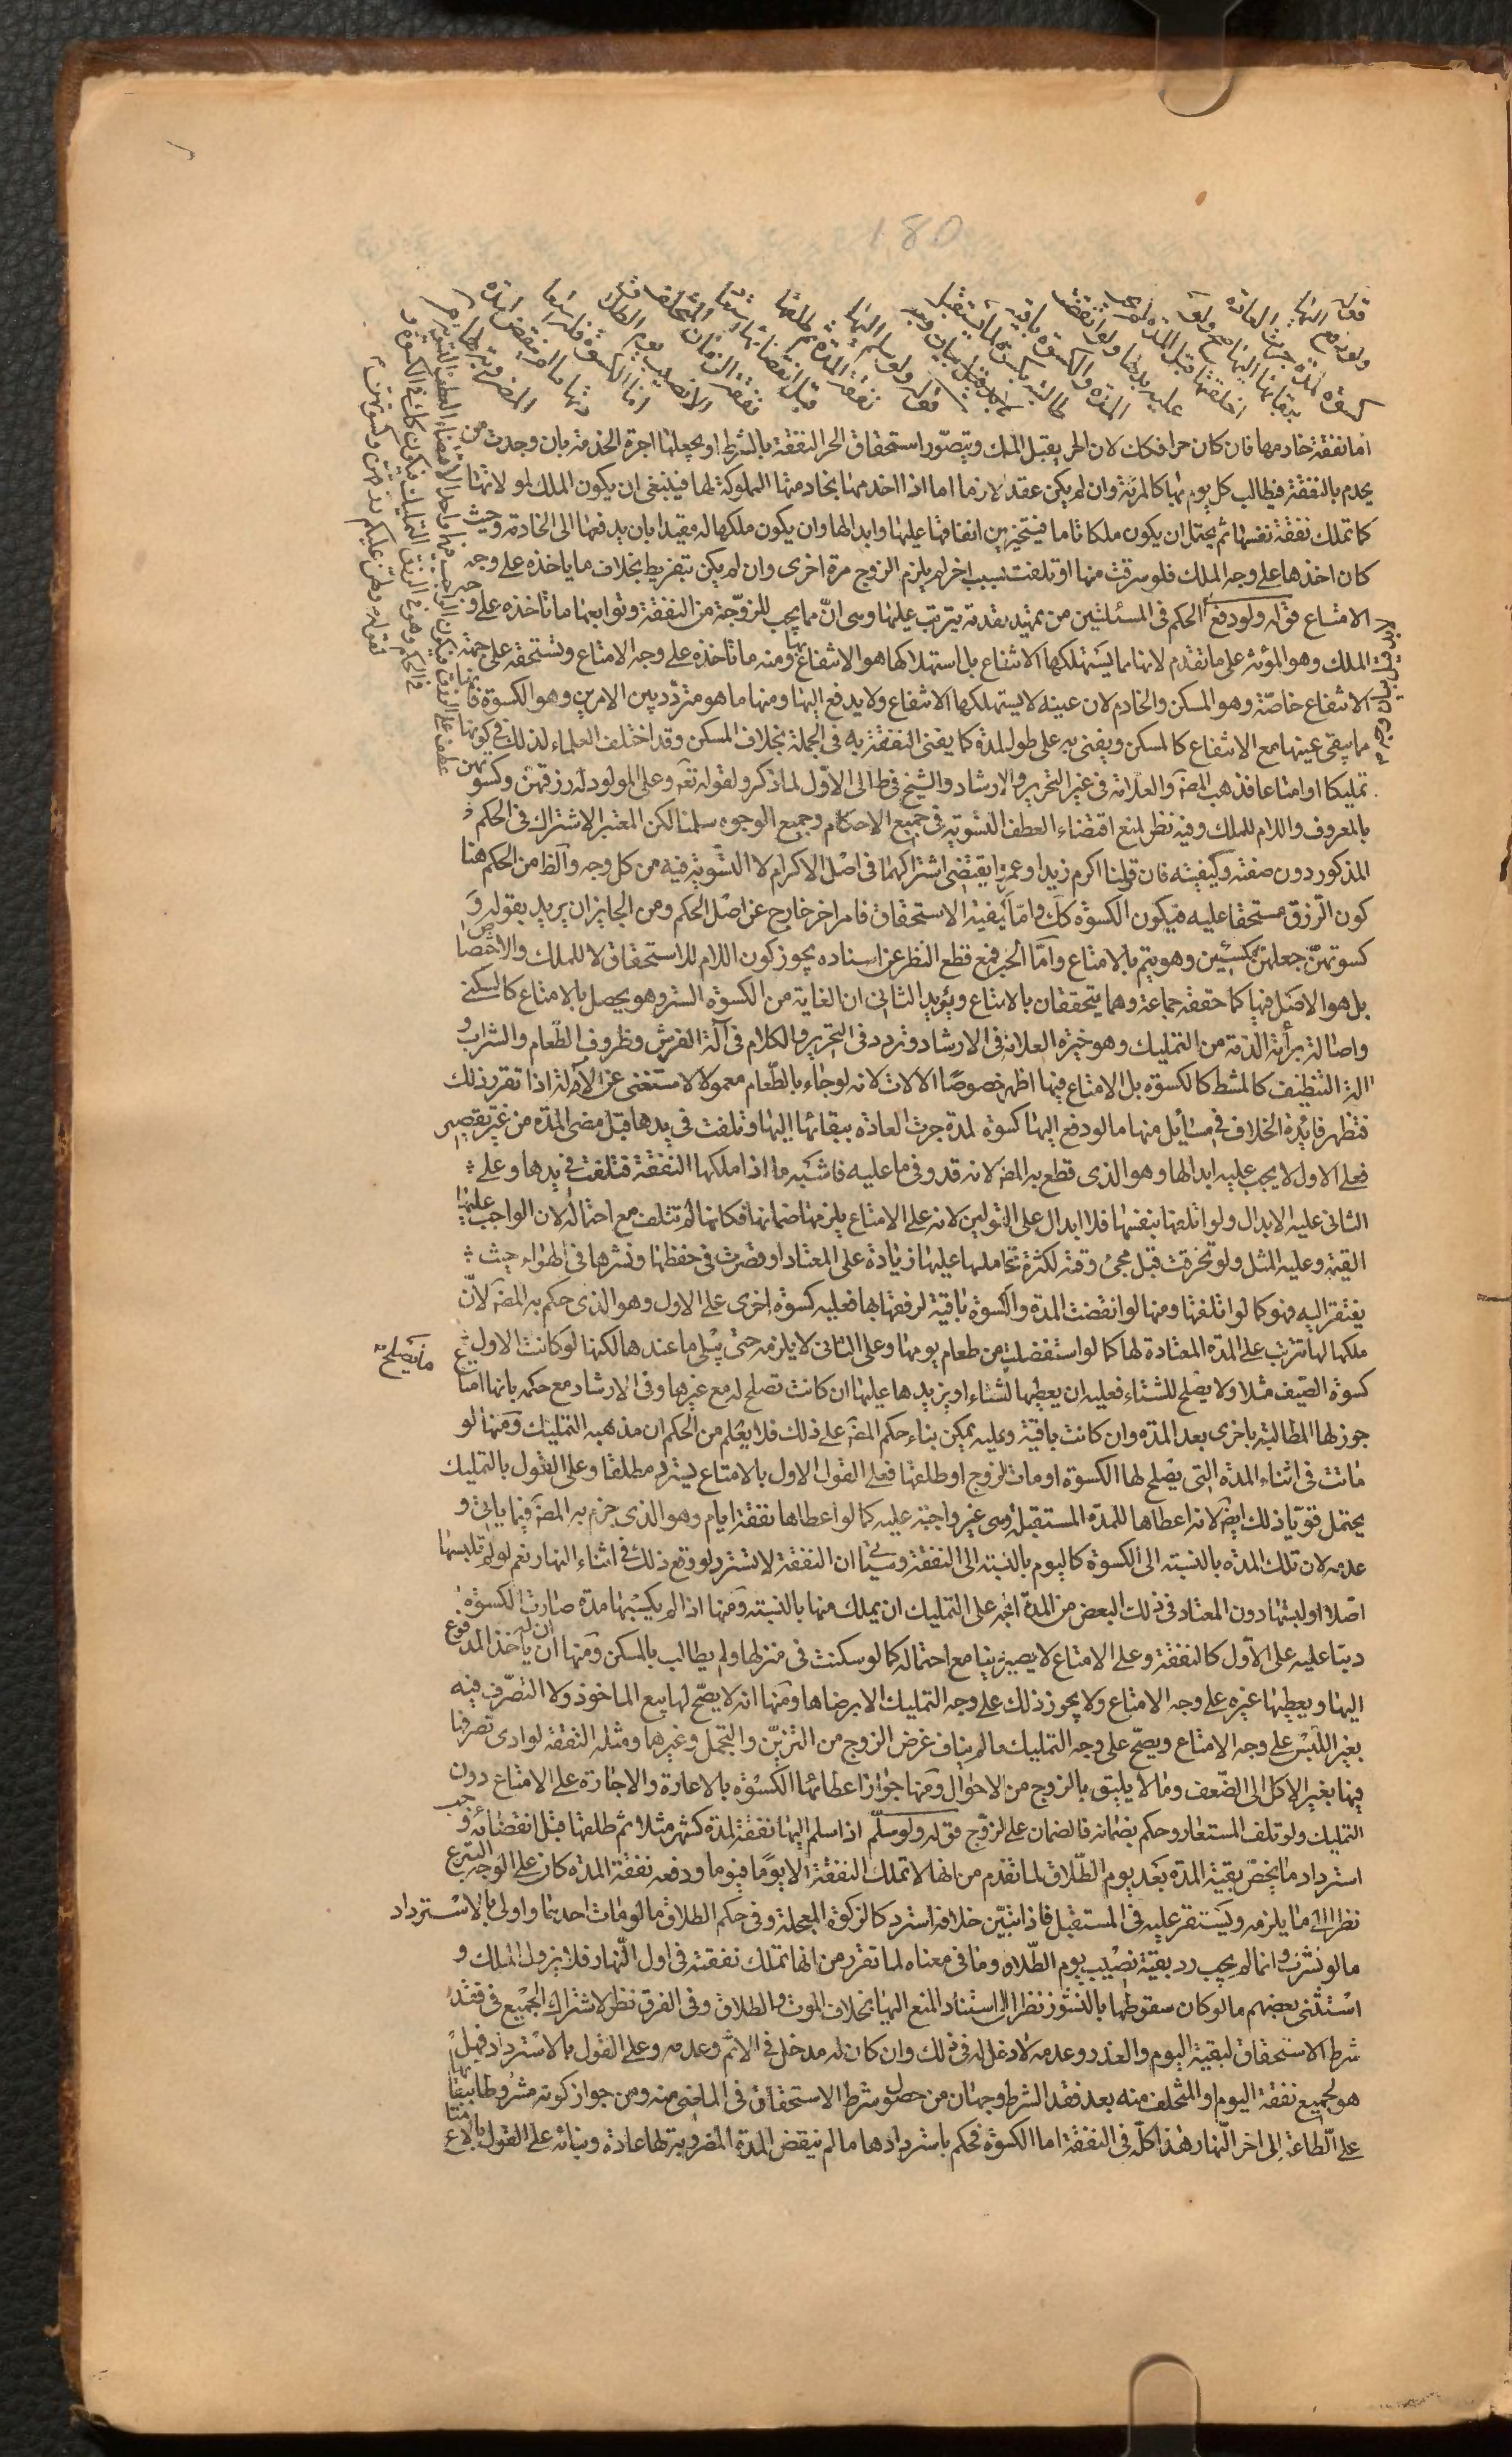 180
قوله ولو دفع اليها كسوة لمدة جرت العادة ببقائها اليها صح ولو اخلقتها قبل المدة لم يجب عليه بدلها ولو انقضت المدة والكسوة باقية طالبته بكسوة لما يستقبل
قوله ولو سلم اليها نفقة لمدة ثم طلقها قبل انقضائها استعاد نفقة الزمان المتخلف الا نصيب يوم الطلاق اما الكسوة فله استعادتها ما لم ينقض المدة المضروبة لها
اما نفقة خادمها فان كان حرا فكك لان الحر يقبل الملك ويتصور استحقاق الحر النفقة بالشرط او بجعلها اجرة الخدمة بان وجدت من
يخدم بالنفقة فيطالب كل يوم بها كالمرئة وان لم يكن عقد لازما اما اذا اخدمها بخادمتها المملوكة لها فينبغي ان يكون الملك لمولاتها
كما تملك نفقة نفسها ثم يحتمل ان يكون ملكا تاما فيتخير بين انفاقها عليها وابدالها وان يكون ملكها له مقيدا بان يدفعها الى الخادمة وحيث
كان اخذها على وجه الملك فلو سرقت منها او تلفت بسبب اخر لم يلزم الزوج مرة اخرى وان لم يكن بتفريط بخلاف ما ياخذه على وجه
الامتاع قوله ولو دفع الحكم في المسئلتين من تمهيد مقدمة يترتب عليها وهي ان ما يجب للزوجة من النفقة وتوابعها ما تاخذه على وجه
الملك وهو المؤنة على ما تقدم لانها مما يستهلكها الانتفاع بل استهلاكها هو الانتفاع بها ومنه ما تاخذه على وجه الامتاع وتستحقه على جهة
الانتفاع خاصة وهو المسكن والخادم لان عينه لا يستهلكها الانتفاع ولا يدفع اليها ومنها ما هو متردد بين الامرين وهو الكسوة فانها
مما يبقى عينها مع الانتفاع كالمسكن ويفنى به على طول المدة كما يفنى النفقة به في الجملة بخلاف المسكن وقد اختلف العلماء لذلك في كونها
تمليكا او امتاعا فذهب المصَ والعلامة في غير التحرير والارشاد والشيخ في ط الى الاول لما ذكر ولقوله تعَ وعلى المولود له رزقهن وكسوتهن
بالمعروف واللام للملك وفيه نظر لمنع اقتضاء العطف التسوية في جميع الاحكام وجميع الوجوه سلمنا لكن المعتبر الاشتراك في الحكم
المذكور دون صفته وكيفيته فان قولنا اكرم زيدا وعمرا يقتضي اشتراكهما في اصل الاكرام لا التسوية فيه من كل وجه والظ من الحكم هنا
كون الرزق مستحقا عليه فيكون الكسوة كك واما كيفية الاستحقاق فامر اخر خارج عن اصل الحكم ومن الجايز ان يريد بقوله و
كسوتهن جعلهن مكتسين وهو يتم بالامتاع واما الخبر فمع قطع النظر عن اسناده يجوز كون اللام للاستحقاق لا للملك والاختصاص
بل هو الاصل فيها كما حققه جماعة وهما يتحققان بالامتاع ويؤيد الثاني ان الغاية من الكسوة الستر وهو يحصل بالامتاع كالسكنى
واصالة برائة الذمة من التمليك وهو خيرة العلامة في الارشاد وتردد في التحرير والكلام في آلة الفرش وظروف الطعام والشراب و
الة التنظيف كالمشط كالكسوة بل الامتاع فيها اظهر خصوصا الالات لانه لو جاء بالطعام معمولا لاستغنى عن الآلة اذا تقرر ذلك
فتظهر فائدة الخلاف في مسائل منها ما لو دفع اليها كسوة لمدة جرت العادة ببقائها اليها وتلفت في يدها قبل مضي المدة من غير تقصير
فعلى الاول لا يجب عليه ابدالها وهو الذي قطع به المصَ لانه قد وفى ما عليه فاشبه ما اذا ملكها النفقة فتلفت في يدها وعلى
الثاني عليه الابدال ولو اتلفها بنفسها فلا ابدال على القولين لانه على الامتاع يلزمها ضمانها فكانها لم تتلف مع احتماله لان الواجب عليها
القيمة وعليه المثل ولو تخرقت قبل مجئ وقته لكثرة تحاملها عليها زيادة على المعتاد او قصرت في حفظها ونشرها في الهواء حيث
يفتقر اليه فهو كما لو اتلفتها ومنها لو انقضت المدة والكسوة باقية لرفعتها بها فعليه كسوة اخرى على الاول وهو الذي حكم به المصَ لان
ملكها لها تترتب على المدة المعتادة لها كما لو استفضلت من طعام يومها وعلى الثاني لا يلزمه حتى يبلى ما عندها لكنها لو كانت الاولى
كسوة الصيف مثلا ولا يصلح للشتاء فعليه ان يعطيها للشتاء ما يصلح له او يزيدها عليها ان كانت تصلح له مع غيرها وفي الارشاد مع حكمه بانها امتاع
جوز لها المطالبة باخرى بعد المدة وان كانت باقية وعليه يمكن بناء حكم المصَ على ذلك فلا يعلم من الحكم ان مذهبه التمليك ومنها لو
ماتت في اثناء المدة التي يصلح لها الكسوة او مات الزوج او طلقها فعلى القول الاول بالامتاع يسترد مطلقا وعلى القول بالتمليك
يحتمل قويا ذلك ايضَ لانه اعطاها للمدة المستقبلة وهي غير واجبة عليه كما لو اعطاها نفقة ايام وهو الذي جزم به المصَ فيما ياتي و
عدمه لان تلك المدة بالنسبة الى الكسوة كاليوم بالنسبة الى النفقة وسيئتي ان النفقة لا تسترد لو وقع ذلك في اثناء النهار نعم لو لم تلبسها
اصلا او لبستها دون المعتاد في ذلك البعض من المدة اتجه على التمليك ان يملك منها بالنسبة ومنها اذا لم يكسيها مدة صارت الكسوة
دينا عليه على الاول كالنفقة وعلى الامتاع لا يصير دينا مع احتماله كما لو سكنت في منزلها ولم يطالب بالمسكن ومنها ان له ان ياخذ المدفوع
اليها ويعطيها غيره على وجه الامتاع ولا يجوز ذلك على وجه التمليك الا برضاها ومنها انه لا يصح لها بيع الماخوذ ولا التصرف فيه
بغير اللبس على وجه الامتاع ويصح على وجه التمليك ما لم يناف غرض الزوج من التزين والتجمل وغيرها ومثله النفقة لو ادى تصرفها
فيها بغير الاكل الى الضعف وما لا يليق بالزوج من الاحوال ومنها جواز اعطائها الكسوة بالاعارة والاجارة على الامتاع دون
التمليك ولو تلف المستعار وحكم بضمانه فالضمان على الزوج قوله ولو سلم اذا سلم اليها نفقة لمدة كشهر مثلا ثم طلقها قبل انقضائه وجب
استرداد ما يخص بقية المدة بعد يوم الطلاق لما تقدم من انها لا تملك النفقة الا يوما فيوما ودفعه نفقة المدة كان على الوجه التبرع
نظرا الى ما يلزمه ويستقر عليه في المستقبل فاذا تبين خلافه استرد كالزكوة المعجلة وفي حكم الطلاق ما لو مات احدهما واولى بالاسترداد
ما لو نشزت وانما لم يجب رد بقية نصيب يوم الطلاق وما في معناه لما تقرر من انها تملك نفقته في اول النهار فلا يزول الملك و
استثنى بعضهم ما لو كان سقوطها بالنشوز نظرا الى استناد المنع اليها بخلاف الموت والطلاق وفي الفرق نظر لاشتراك الجميع في فقد
شرط الاستحقاق لبقية اليوم والعذر وعدمه لا دخل له في ذلك وان كان له مدخل في الاثم وعدمه وعلى القول بالاسترداد فهل
هو لجميع نفقة اليوم او المتخلف منه بعد فقد الشرط وجهان من حصول شرط الاستحقاق في الماضي منه ومن جواز كونه مشروطا ببقائها
على الطاعة الى اخر النهار هذا كله في النفقة اما الكسوة فحكم باستردادها ما لم ينقض المدة المضروبة لها عادة وبنائه على القول بالامتاع
ما يصلح له